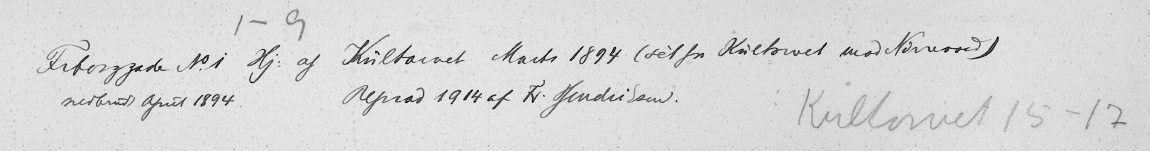 1-9
Frborggade No. 1 Hj: af Kŭltorvet Marts 1894 (set fra Kŭltorvet mod Nørrevold)
nedbrudt April 1894. Reprod 1914 af Fr. Hendriksen.
Kultorvet 15-17